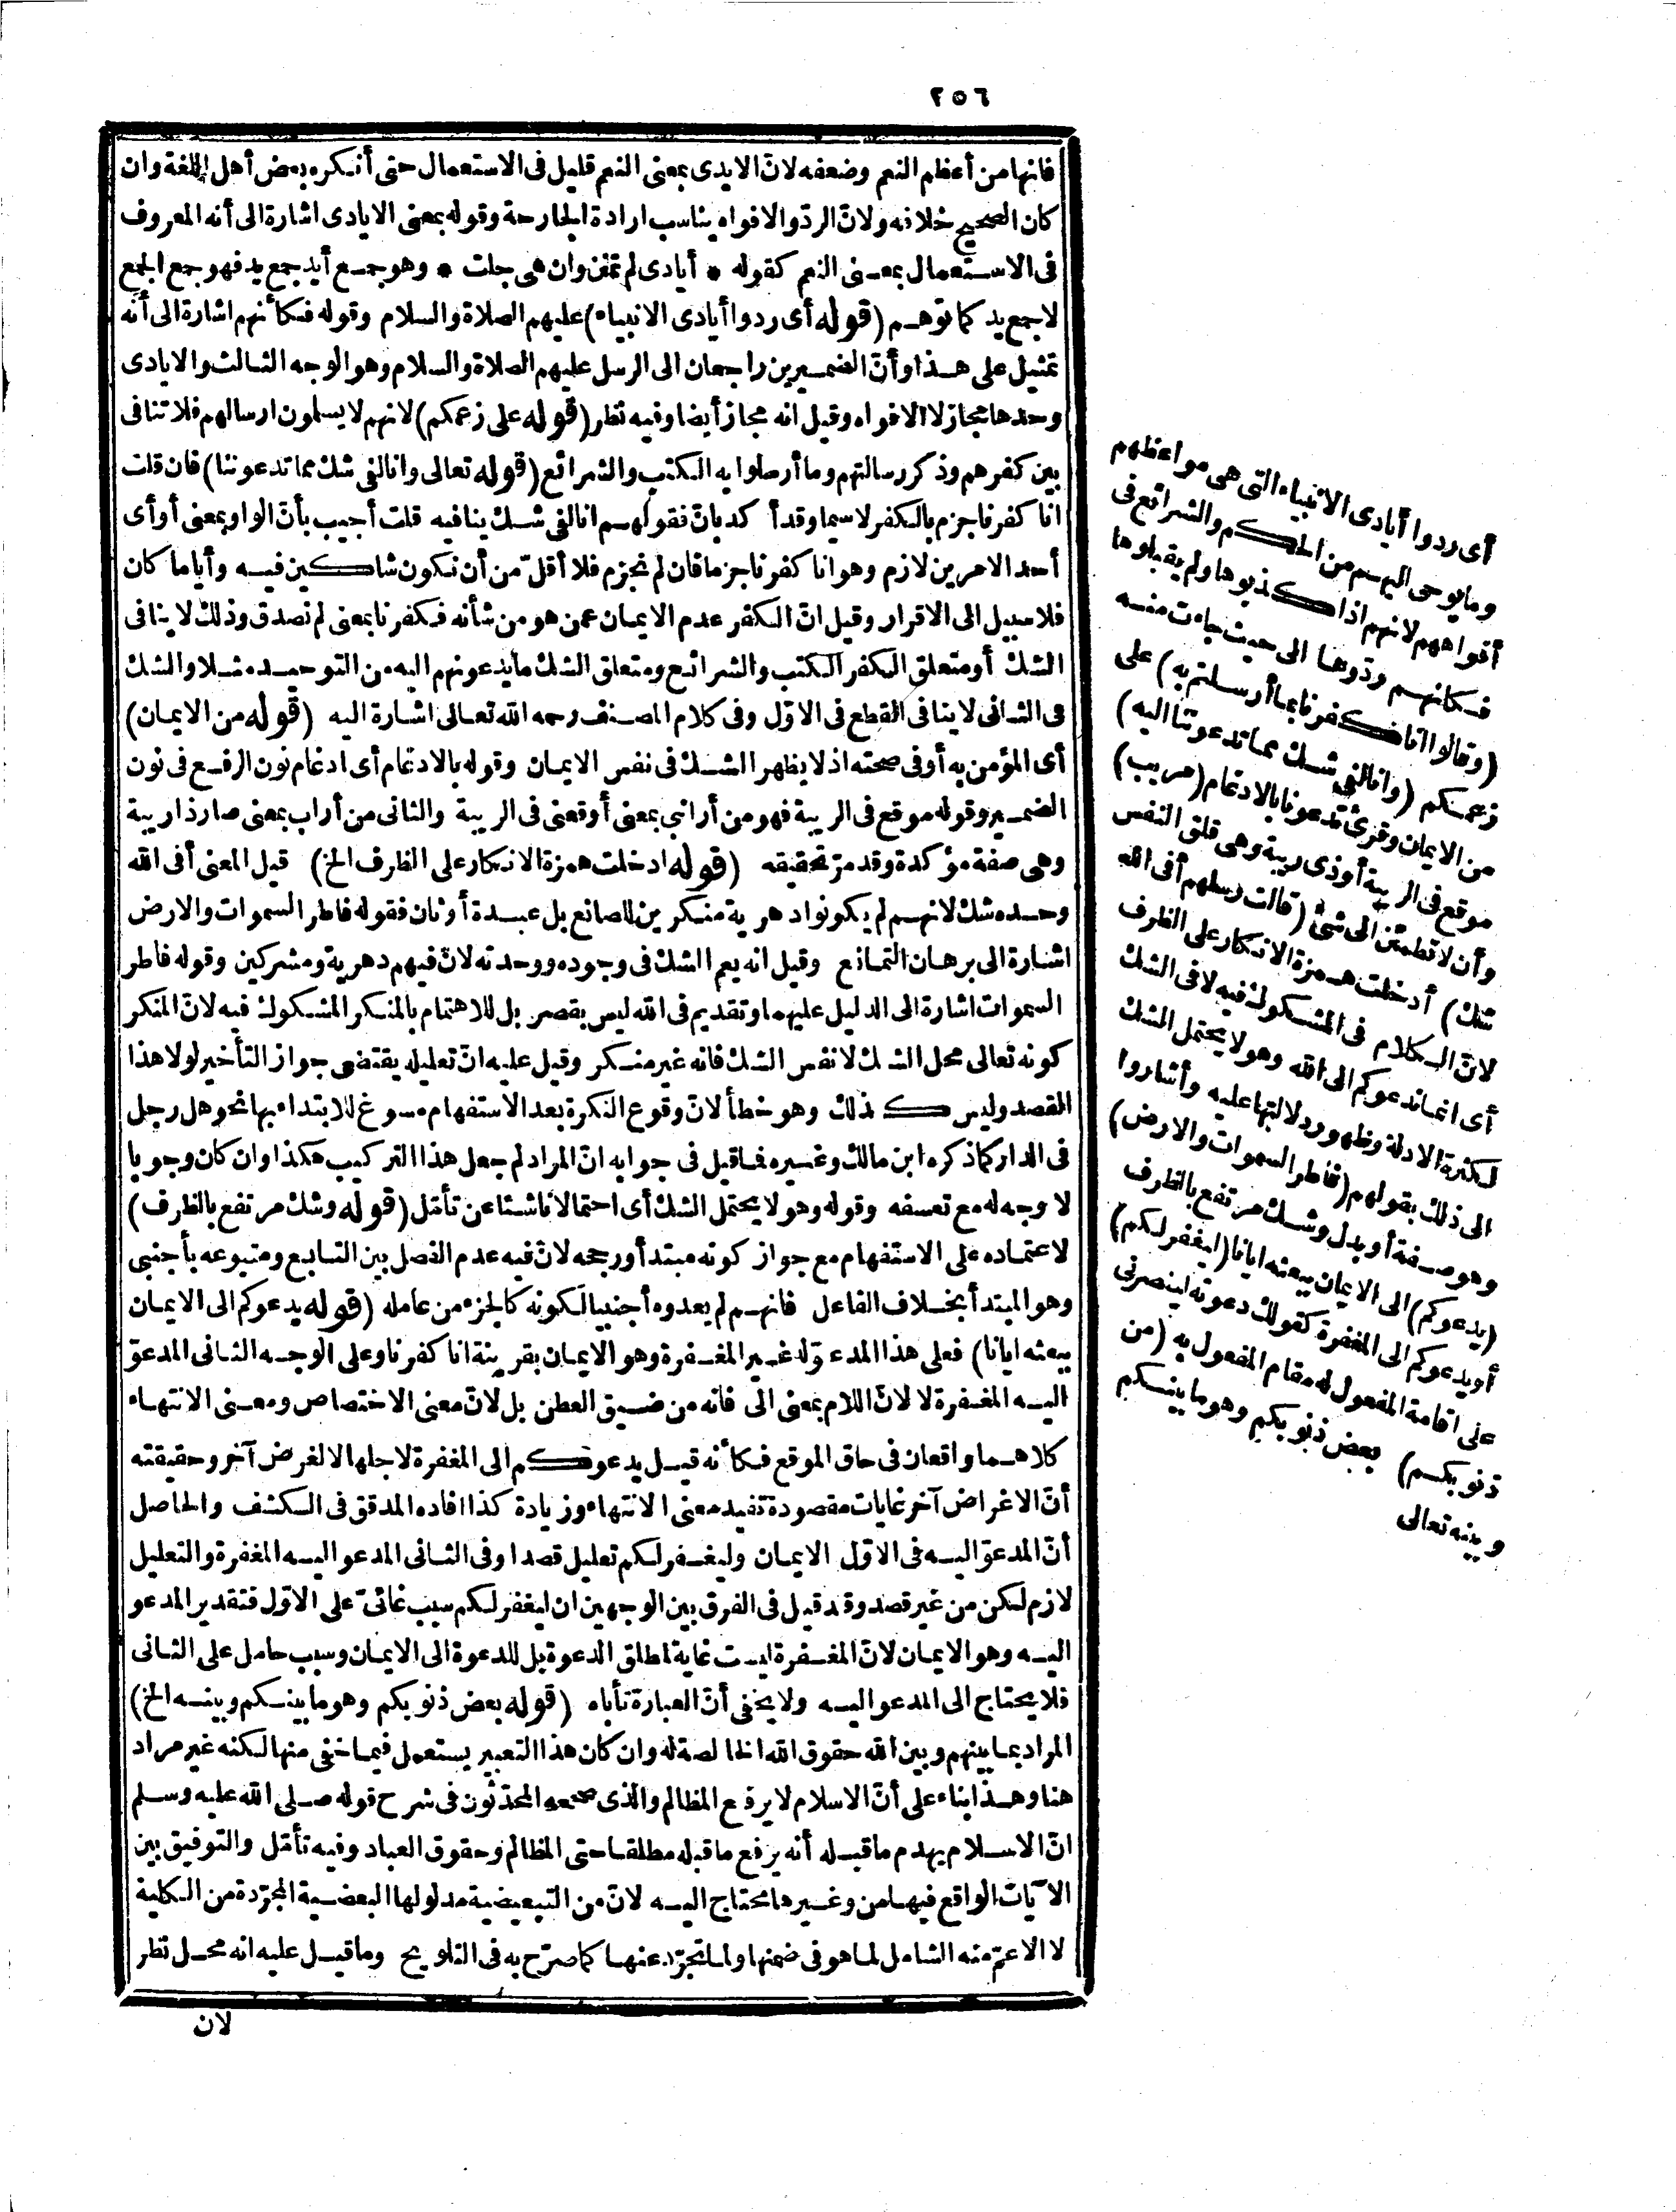 ٢٥٦
فانها من أعظم النعم وضعفه لانّ الايدى بمعنى النعم قليل فى الاستعمال حتى أنكره بعض أهل اللغة وان
كان الصحيح خلافه ولانّ الردّ والافواه يناسب ارادة الجارحة وقوله بمعنى الايادى اشارة الى أنه المعروف
فى الاستعمال بمعنى النعم كقوله * أيادى لم تمنن وان هى جلت * وهو جمع أيد جمع يد فهو جمع الجمع
لاجمع يد كما توهم (قوله أى ردوا أيادى الانبياء) عليهم الصلاة والسلام وقوله فكأنهم اشارة الى أنه
تمثيل على هذا وأنّ الضميرين راجعان الى الرسل عليهم الصلاة والسلام وهو الوجه الثالث والايادى
وحدها مجاز لا الافواه وقيل انه مجاز أيضا وفيه نظر (قوله على زعمكم) لانهم لا يسلمون ارسالهم فلا تنافى
بين كفرهم وذكر رسالتهم وما أرسلوا به الكتب والشرائع (قوله تعالى وانا لفى شك مما تدعوننا) فان قلت
انا كفرنا جزم بالكفر لاسيما وقد أكد بانّ فقولهم انا لفى شك ينافيه قلت أجيب بأنّ الواو بمعنى أو أى
أحد الامرين لازم وهو انا كفرنا جزما فان لم نجزم فلا أقلّ من أن نكون شاكين فيه وأياما كان
فلا سبيل الى الاقرار وقيل انّ الكفر عدم الايمان عمن هو من شأنه فكفرنا بمعنى لم نصدق وذلك لا ينافى
الشك أو متعلق الكفر الكتب والشرائع ومتعلق الشك ما يدعونهم اليه من التوحيد مثلا والشك
فى الثانى لا ينافى القطع فى الاوّل وفى كلام المصنف رحمه الله تعالى اشارة اليه (قوله من الايمان)
أى المؤمن به أو فى صحته اذ لا يظهر الشك فى نفس الايمان وقوله بالادغام أى ادغام نون الرفع فى نون
الضمير وقوله موقع فى الريبة فهو من أرابنى بمعنى أوقعنى فى الريبة والثانى من أراب بمعنى صار ذا ريبة
وهى صفة مؤكدة وقد مرّ تحقيقه (قوله ادخلت همزة الانكار على الظرف الخ) قيل المعنى أفى الله
وحده شك لانهم لم يكونوا دهرية منكرين للصانع بل عبدة أوثان فقوله فاطر السموات والارض
اشارة الى برهان التمانع وقيل انه يعم الشك فى وجوده ووحدته لانّ فيهم دهرية ومشركين وقوله فاطر
السموات اشارة الى الدليل عليهما وتقديم فى الله ليس بقصر بل للاهتمام بالمنكر المشكوك فيه لانّ المنكر
كونه تعالى محل الشك لا نفس الشك فانه غير منكر وقيل عليه انّ تعليله يقتضى جواز التأخير لولا هذا
القصد وليس كذلك وهو خطأ لانّ وقوع النكرة بعد الاستفهام مسوغ للابتداء بها نحو هل رجل
فى الدار كما ذكره ابن مالك وغيره فما قيل فى جوابه انّ المراد لم جعل هذا التركيب هكذا وان كان وجوبا
لا وجه له مع تعسفه وقوله وهو لا يحتمل الشك أى احتمالا ناشئا عن تأمّل (قوله وشك مرتفع بالظرف)
لاعتماده على الاستفهام مع جواز كونه مبتدأ ورجحه لانّ فيه عدم الفصل بين التابع ومتبوعه بأجنبى
وهو المبتدأ بخلاف الفاعل فانهم لم يعدوه أجنبيا لكونه كالجزء من عامله (قوله يدعوكم الى الايمان
ببعثه ايانا) فعلى هذا المدعوّ له غير المغفرة وهو الايمان بقرينة انا كفرنا وعلى الوجه الثانى المدعوّ
اليه المغفرة لا لانّ اللام بمعنى الى فانه من ضيق العطن بل لانّ معنى الاختصاص ومعنى الانتهاء
كلاهما واقعان فى حاق الموقع فكأنه قيل يدعوكم الى المغفرة لاجلها لا لغرض آخر وحقيقته
أنّ الاغراض آخر غايات مقصودة تفيد معنى الانتهاء وزيادة كذا افاده المدقق فى الكشف والحاصل
أنّ المدعوّ اليه فى الاوّل الايمان وليغفر لكم تعليل قصدا وفى الثانى المدعو اليه المغفرة والتعليل
لازم لكن من غير قصد وقد قيل فى الفرق بين الوجهين ان ليغفر لكم سبب غائىّ على الاوّل فتقدير المدعو
اليه وهو الايمان لانّ المغفرة ليست غاية لمطلق الدعوة بل للدعوة الى الايمان وسبب حامل على الثانى
فلا يحتاج الى المدعو اليه ولا يخفى أنّ العبارة تأباه (قوله بعض ذنوبكم وهو ما بينكم وبينه الخ)
المراد بما بينهم وبين الله حقوق الله الخالصة له وان كان هذا التعبير يستعمل فيما خفى منها لكنه غير مراد
هنا وهذا بناء على أنّ الاسلام لا يرفع المظالم والذى صححه المحدّثون فى شرح قوله صلى الله عليه وسلم
انّ الاسلام يهدم ما قبله أنه يرفع ما قبله مطلقا حتى المظالم وحقوق العباد وفيه تأمّل والتوفيق بين
الآيات الواقع فيها من وغيرها محتاج اليه لانّ من التبعيضية مدلولها البعضية المجرّدة من الكلية
لا الاعمّ منه الشامل لما هو فى ضمنها ولما تجرّد عنها كما صرّح به فى التلويح وما قيل عليه انه محل نظر
لان
أى ردوا أيادى الانبياء التى هى مواعظهم
وما يوحى اليهم من الحكم والشرائع فى
أفواههم لانهم اذا كذبوها ولم يقبلوها
فكأنهم ردّوها الى حيث جاءت منه
(وقالوا انّا كفرنا بما أرسلتم به) على
زعمكم (وانا لفى شك مما تدعوننا اليه)
من الايمان وقرئ تدعونا بالادغام (مريب)
موقع فى الريبة أو ذى ريبة وهى قلق النفس
وأن لا تطمئنّ الى شئ (قالت رسلهم أفى الله
شك) أدخلت همزة الانكار على الظرف
لانّ الكلام فى المشكوك فيه لا فى الشك
أى انما ندعوكم الى الله وهو لا يحتمل الشك
لكثرة الادلة وظهور دلالتها عليه وأشاروا
الى ذلك بقولهم (فاطر السموات والارض)
وهو صفة أو بدل وشك مرتفع بالظرف
(يدعوكم) الى الايمان ببعثه ايانا (ليغفر لكم)
أو يدعوكم الى المغفرة كقولك دعوته لينصرنى
على اقامة المفعول له مقام المفعول به (من
ذنوبكم) بعض ذنوبكم وهو ما بينكم
وبينه تعالى